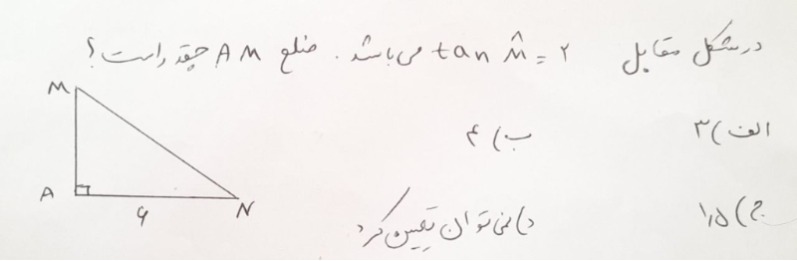 در شکل مقابل tan M̂ = ۲ می باشد. ضلع AM چقدر است؟
الف) ۳
ب) ۴
ج) ۱٫۵
د) نمی توان تعیین کرد
M
A
۶
N